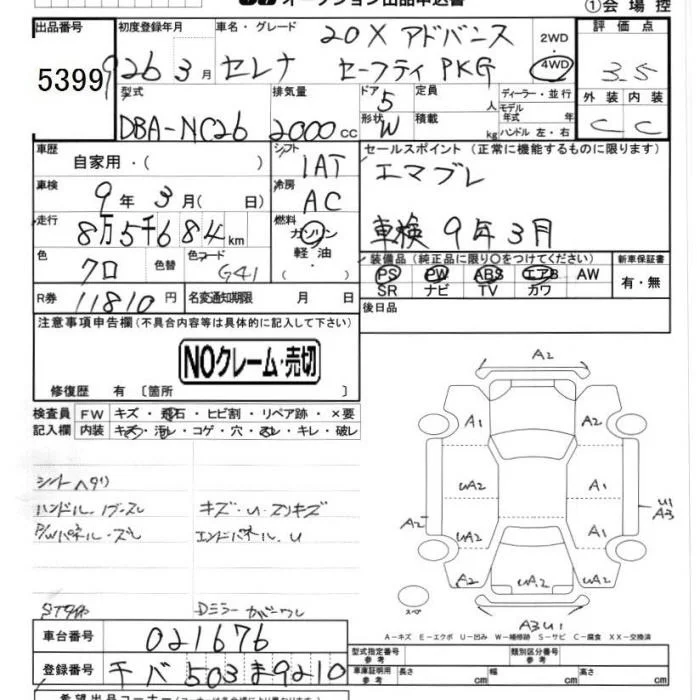 オークション出品申込書 ①会場控
出品番号 初度登録年月 車名・グレード 20X アドバンス 2WD 評価点
5399 26 3月 セレナ セーフティPKG 4WD 3.5
型式 排気量 ドア 5 定員 人 ディーラー・並行 外装 内装
DBA-NC26 2000cc 形状 W 積載 kg モデル年式 年式 ハンドル 左・右 C C
車歴 自家用・( ) シフト 1AT セールスポイント(正常に機能するものに限ります)
車検 9年3月( 日) 冷房 AC エマブレ
走行 8万5千684km 燃料 ガソリン 軽油・( ) 車検 9年3月
色 クロ 色替 色コード G41 装備品(純正品に限り○をつけてください) 新車保証書
PS PW ABS エアB AW 有・無
SR ナビ TV カワ
R券 11810円 名変通知期限 月 日 後日品
注意事項申告欄(不具合内容等は具体的に記入して下さい)
NOクレーム・売切
修復歴 有〔箇所 〕
検査員 FW キズ・飛石・ヒビ割・リペア跡・×要
記入欄 内装 キズ・汚レ・コゲ・穴・スレ・キレ・破レ
シートヘタリ
ハンドル キズ・U・スリキズ
P/Wパネル・スレ エンドパネル.U
Dミラーカバーワレ
A2
A1 A2
UA2 A1
A2 U1 A3
UA2 A1
A2 UA2 UA2
スペア
A3U1
A-キズ E-エクボ U-凹み W-補修跡 S-サビ C-腐食 XX-交換済
車台番号 021676
型式指定番号 参考 類別区分番号 参考
登録番号 チバ 503 ま 9210 車庫証明用 参考 長さ cm 幅 cm 高さ cm
希望出品コーナー